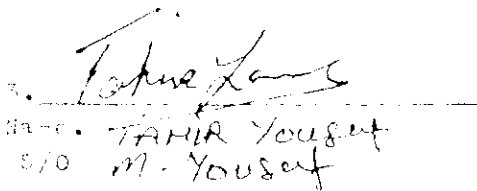 3. Tahir
Name. TAHIR Yousuf
S/O M. Yousuf